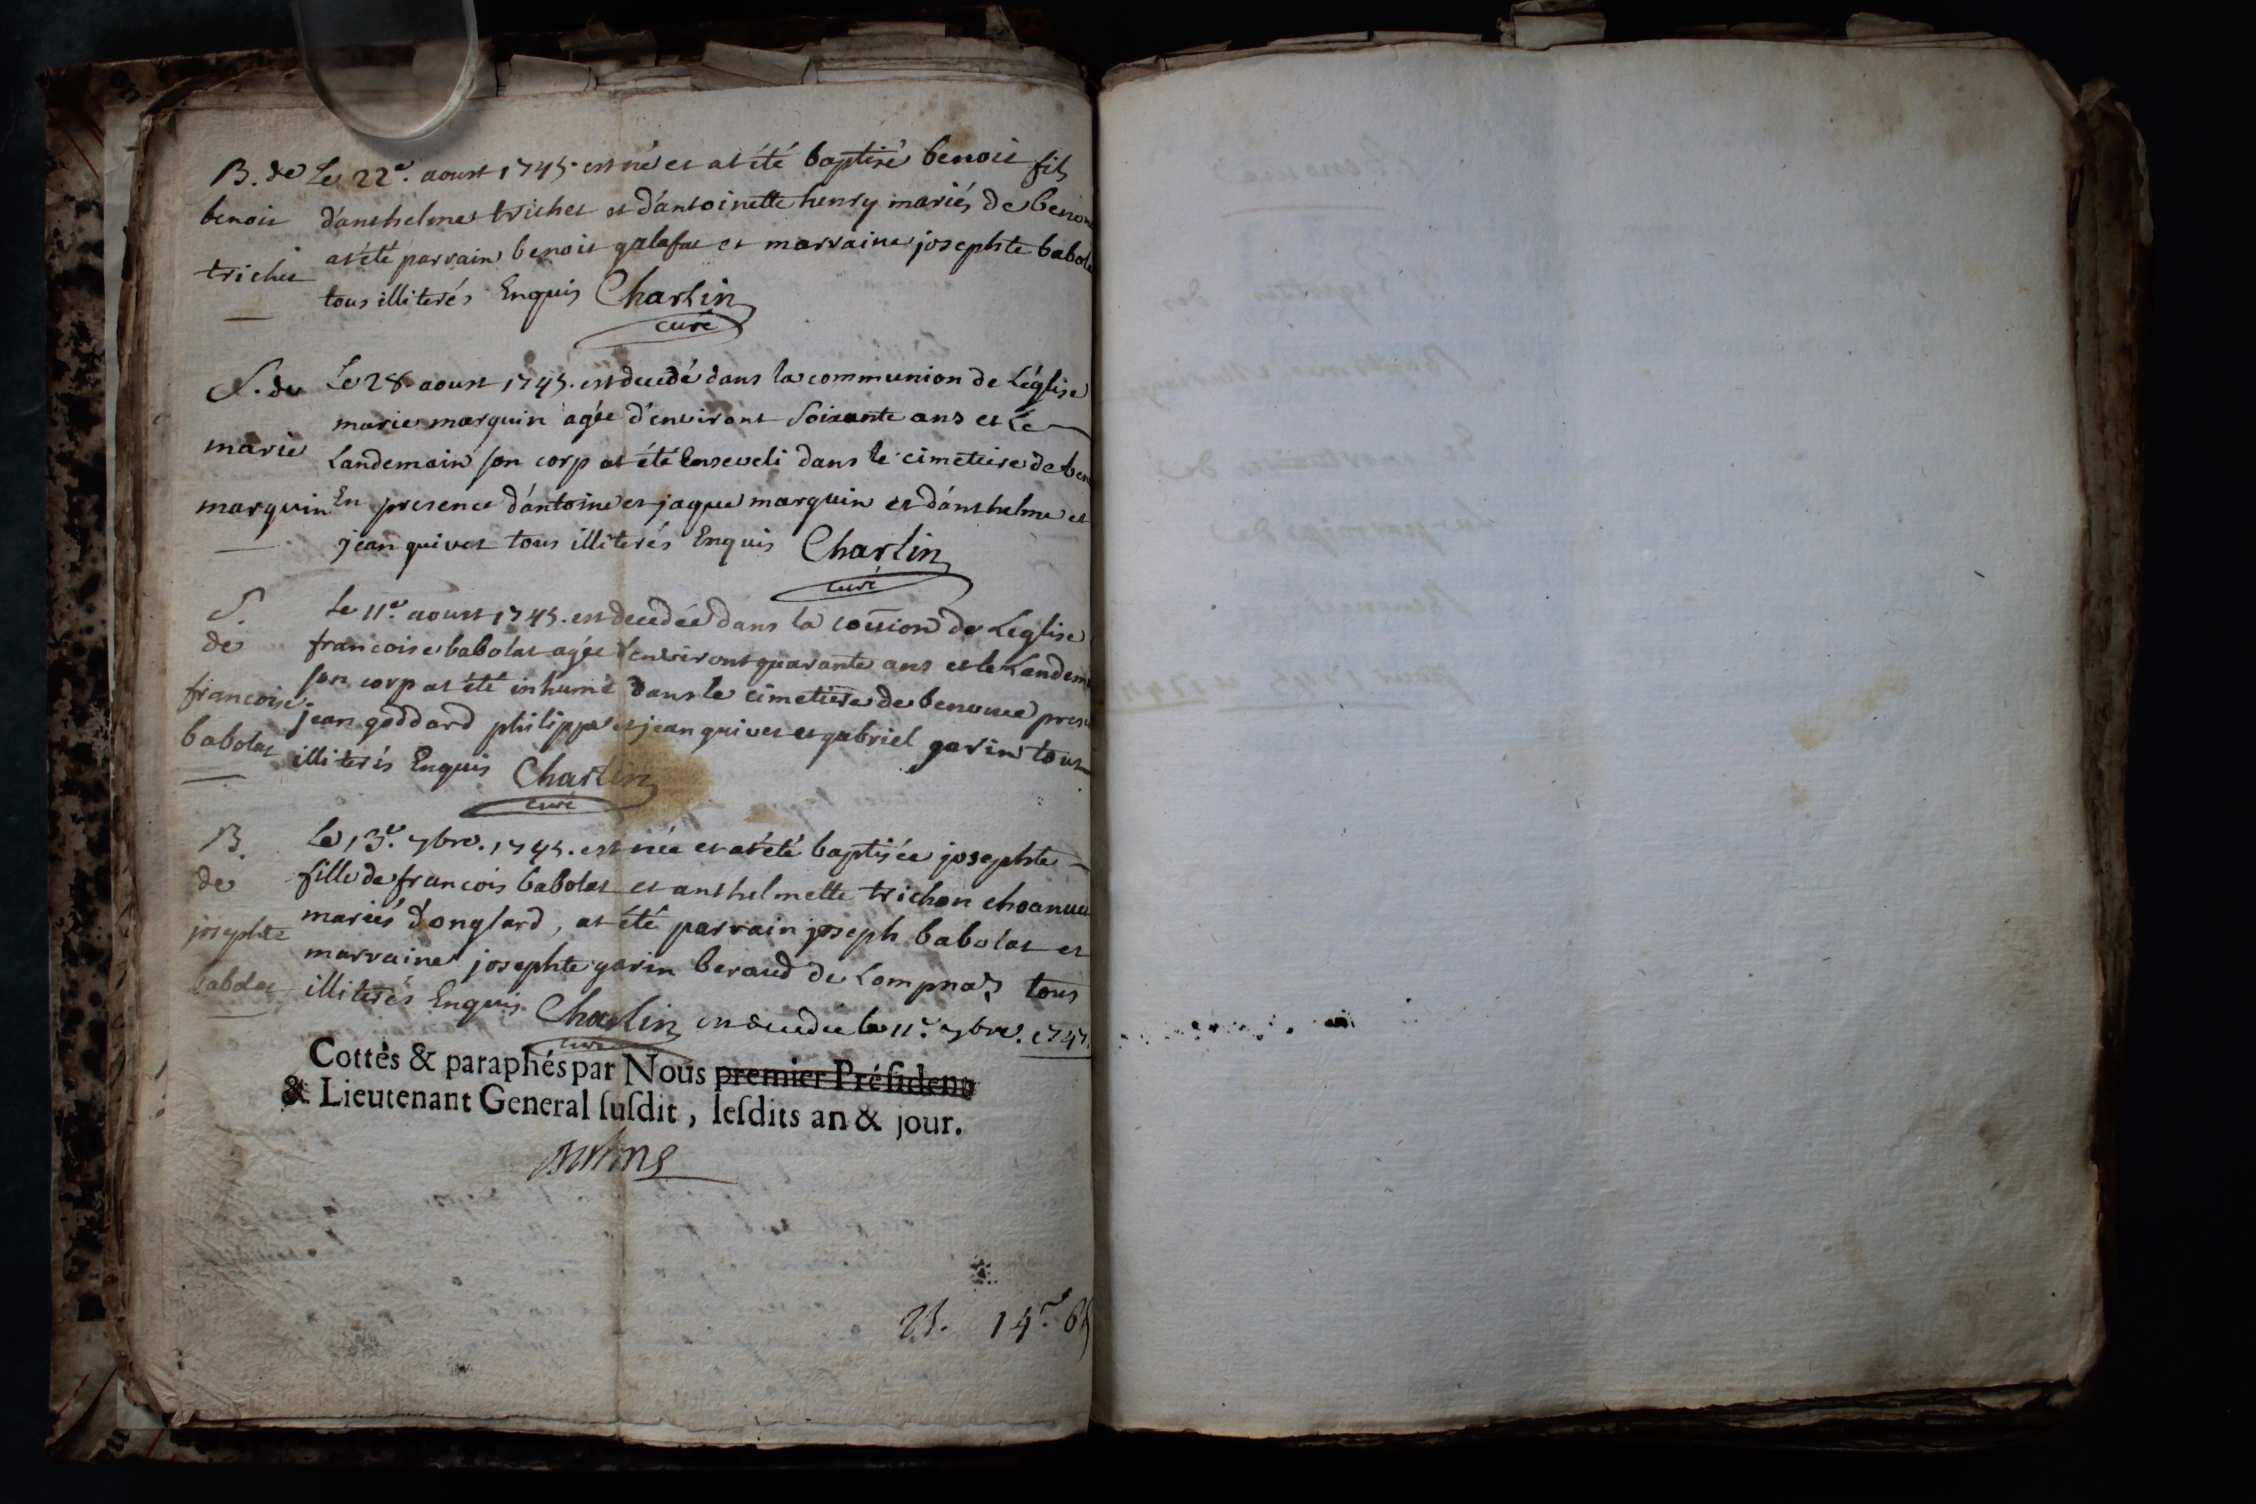 B. de
benoit
trichet
Le 22e. aoust 1745. est né et at été baptisé benoit fils
d'anthelme trichet et d'antoinette henry mariés de benon
at été parrain benoit galafat et marraine josephte babola
tous illiterés Enquis Charlin
curé
S. de
marie
marquin
Le 28 aoust 1745. est decedé dans la communion de L'églisé
marie marquin agée d'environt Soixante ans et Le
Landemain son corp at été Enseveli dans le cimetiere de ben
En presence d'antoine et jaque marquin et d'anthelme et
jean quivet tous illiterés Enquis Charlin
curé
S.
de
francoise
babolat
Le 11e. aoust 1745. est decedée dans la coūion de Leglise
francoise babolat agée d'environt quarante ans et le Landem
son corp at été inhumé dans le cimetiere de benonce pres
jean goddard philippe et jean quivet et gabriel garin tous
illiterés Enquis Charlin
curé
B.
de
josephte
babolat
Le 13e. 7bre. 1745. est née et at été baptisée josephte
fille de francois babolat et anthelmette trichon
mariés d'onglard, at été parrain joseph babolat et
marraine josephte garin beraud de Lompnaz tous
illiterés Enquis Charlin est decedée le 11e. 7bre. 1747
curé
Cottés & paraphés par Nous premier Présiden
& Lieutenant General susdit, lesdits an & jour.
14